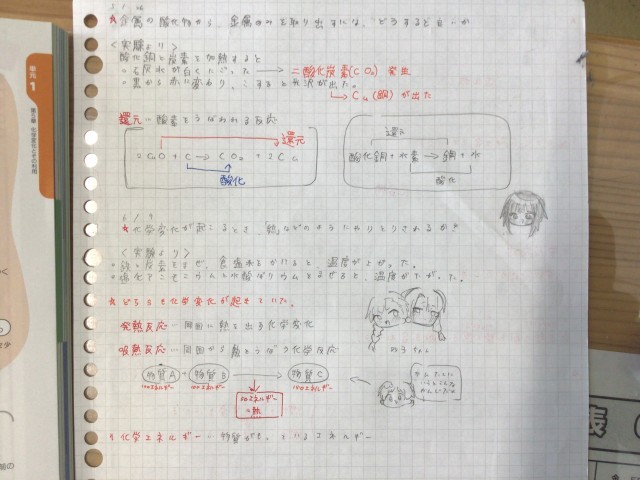 ★金属の酸化物から、金属のみを取り出すには、どうすると良いか
<実験より>
酸化銅と炭素を加熱すると
・石灰水が白くにごった → 二酸化炭素(CO₂)発生
・黒から赤に変わり、こすると光沢が出た。
↳ Cu(銅)が出た
還元…酸素をうばわれる反応
還元
2CuO + C → CO₂ + 2Cu
酸化
還元
酸化銅+水素→銅+水
酸化
6/9
★化学変化が起こるとき、「熱」はどのようなやりとりされるか?
<実験より>
・鉄と炭素をまぜ、食塩水をかいると、温度が上がった。
・塩化アンモニウムと水酸化バリウムをまぜると、温度が下がった。
★どちらも化学変化が起きていた。
発熱反応…周囲に熱を出る化学変化
吸熱反応…周囲から熱をうばう化学反応
物質A + 物質B → 物質C
100エネルギー
100エネルギー
150エネルギー
50エネルギー
=熱
化学エネルギー…物質がもっているエネルギー
単元
1
第3章 化学変化とその利用